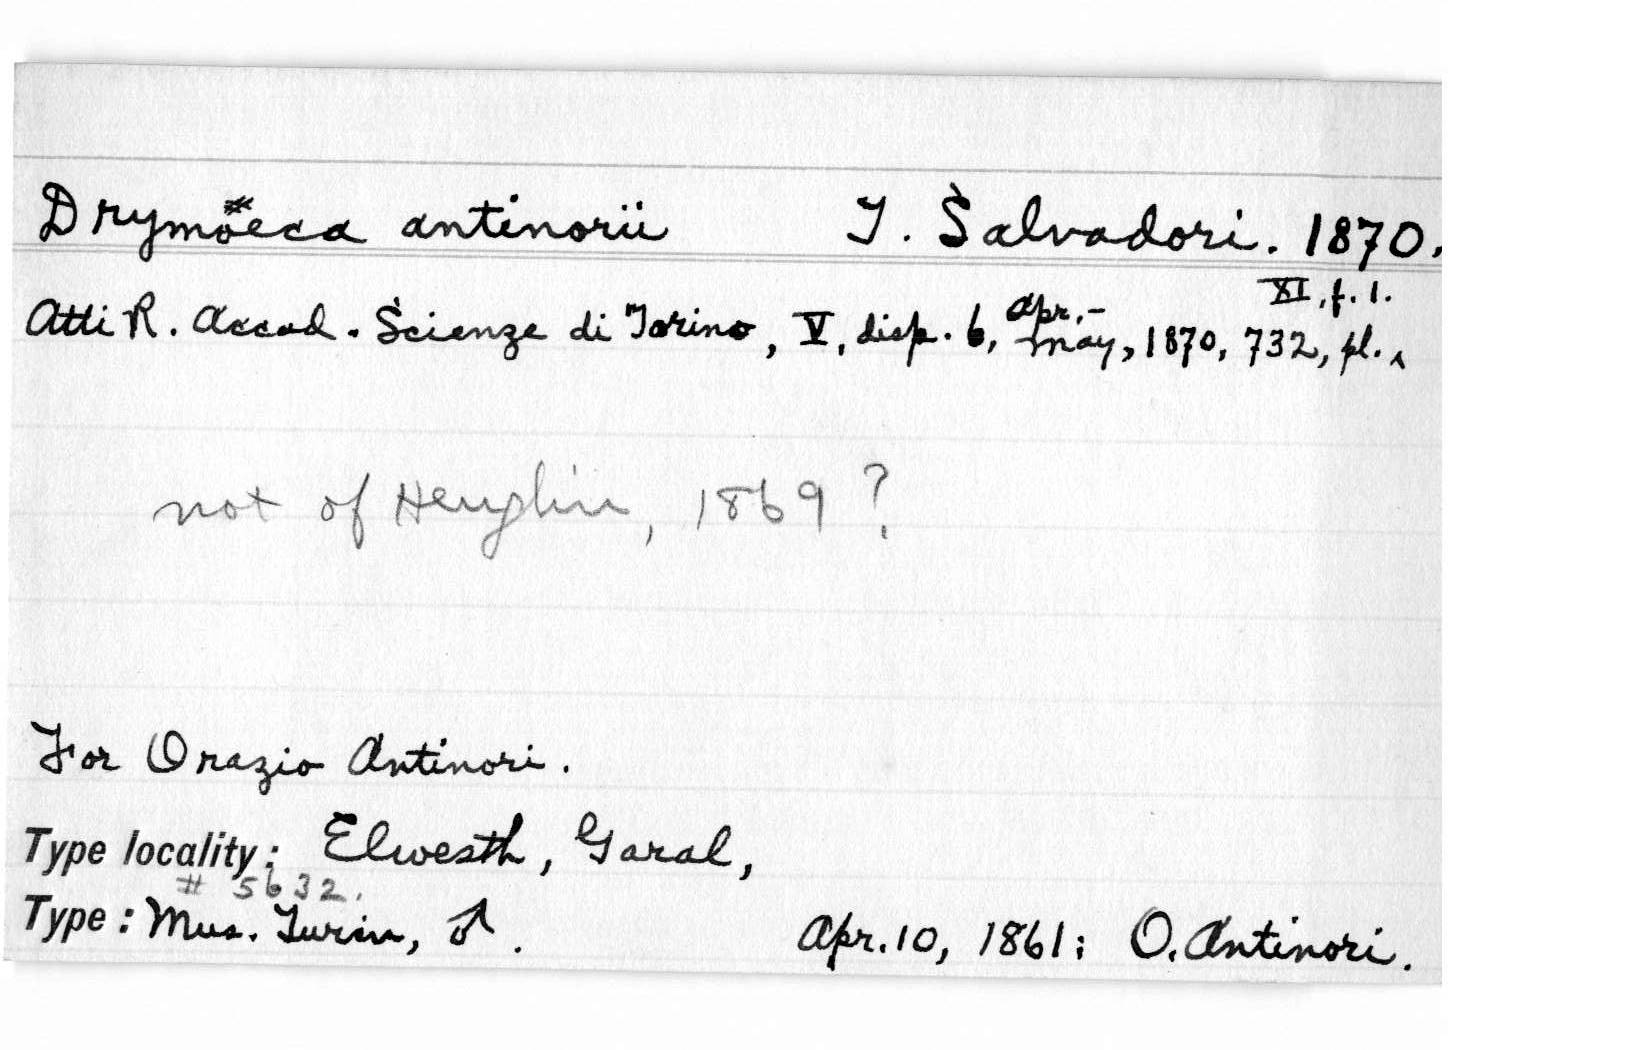 Drymöeca antinorii T. Salvadori. 1870.
Atti R. Accad. Scienze di Torino, V, disp. 6, Apr.-May, 1870, 732, pl. XI, f. 1.
not of Heuglin, 1869?
For Orazio Antinori.
Type locality: Elwesth, Garal,
# 5632.
Type: Mus. Turin, ♂. Apr. 10, 1861; O. Antinori.